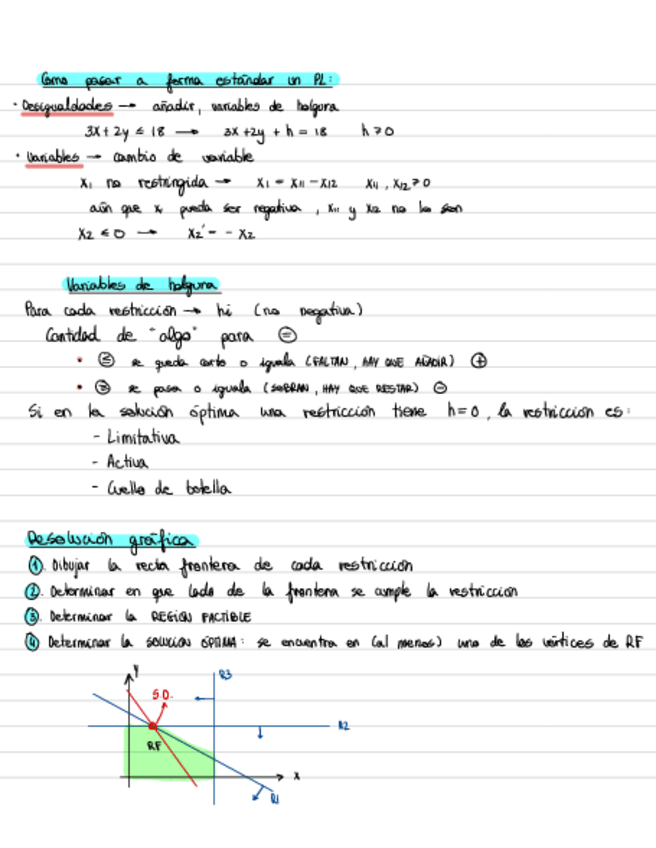 Como pasar a forma estándar un PL:
· Desigualdades → añadir, variables de holgura
3x + 2y ≤ 18 → 3x + 2y + h = 18 h ≥ 0
· Variables → cambio de variable
X₁ no restringida → X₁ = X₁₁ - X₁₂ X₁₁, X₁₂ ≥ 0
aún que X₁ pueda ser negativa, X₁₁ y X₁₂ no lo son
X₂ ≤ 0 → X₂' = - X₂
Variables de holgura
Para cada restricción → hi (no negativa)
Cantidad de "algo" para =
• ≤ se queda corto o iguala (FALTAN, HAY QUE AÑADIR) +
• ≥ se pasa o iguala (SOBRAN, HAY QUE RESTAR) -
Si en la solución óptima una restricción tiene h=0, la restricción es:
- Limitativa
- Activa
- Cuello de botella
Resolución gráfica
1. Dibujar la recta frontera de cada restricción
2. Determinar en que lado de la frontera se cumple la restricción
3. Determinar la REGIÓN FACTIBLE
4. Determinar la SOLUCIÓN ÓPTIMA: se encuentra en (al menos) uno de los vértices de RF
Y
R3
S.O.
R2
RF
X
R1